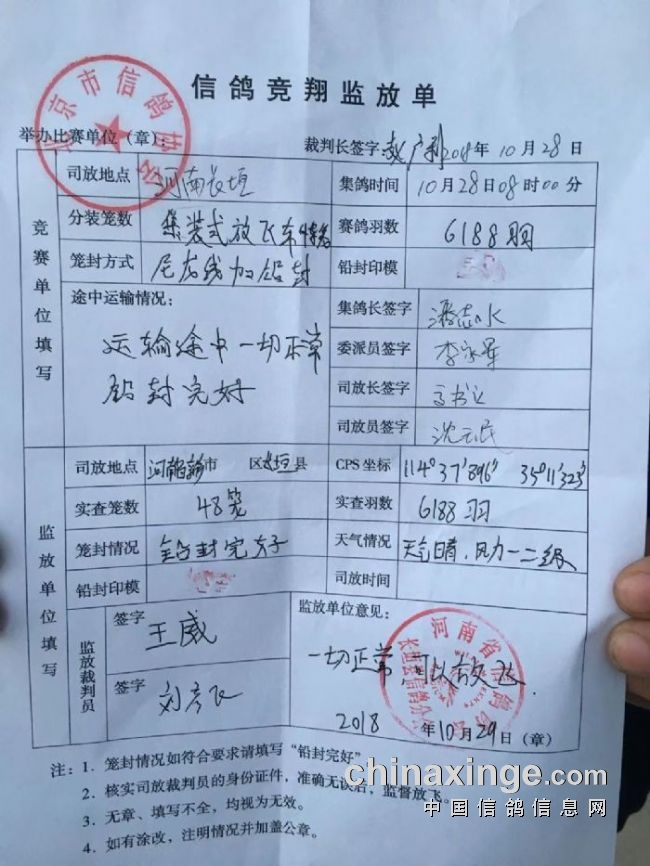 信鸽竞翔监放单
北京市信鸽协会
举办比赛单位（章）： 裁判长签字: 2018年10月28日
竞赛单位填写
司放地点 河南长垣 集鸽时间 10月28日08时00分
分装笼数 集装式放飞车48笼 赛鸽羽数 6188羽
笼封方式 尼龙线加铅封 铅封印模
途中运输情况： 集鸽长签字 潘志水
运输途中一切正常 委派员签字 李永军
铅封完好 司放长签字
司放员签字 沈云民
监放单位填写
司放地点 河南 市 区长垣县 CPS坐标 114°37'896" 35°11'323"
实查笼数 48笼 实查羽数 6188羽
笼封情况 铅封完好 天气情况 天气晴，风力一二级
铅封印模 司放时间
监放裁判员
签字 王威 监放单位意见：
一切正常 可以放飞.
签字 刘彦飞
河南省信鸽协会
长垣县信鸽分会
2018年10月29日（章）
注：1. 笼封情况如符合要求请填写“铅封完好”
2. 核实司放裁判员的身份证件，准确无误后，监督放飞。
3. 无章、填写不全，均视为无效。
4. 如有涂改，注明情况并加盖公章。
chinaxinge.com
中国信鸽信息网